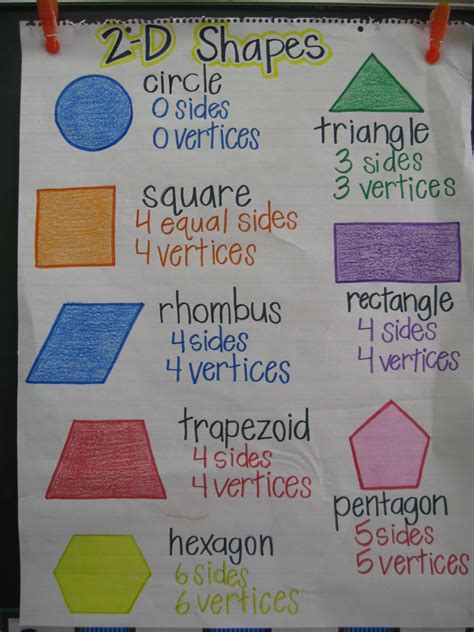 2-D Shapes
circle
0 sides
0 vertices
triangle
3 sides
3 vertices
square
4 equal sides
4 vertices
rectangle
4 sides
4 vertices
rhombus
4 sides
4 vertices
trapezoid
4 sides
4 vertices
pentagon
5 sides
5 vertices
hexagon
6 sides
6 vertices